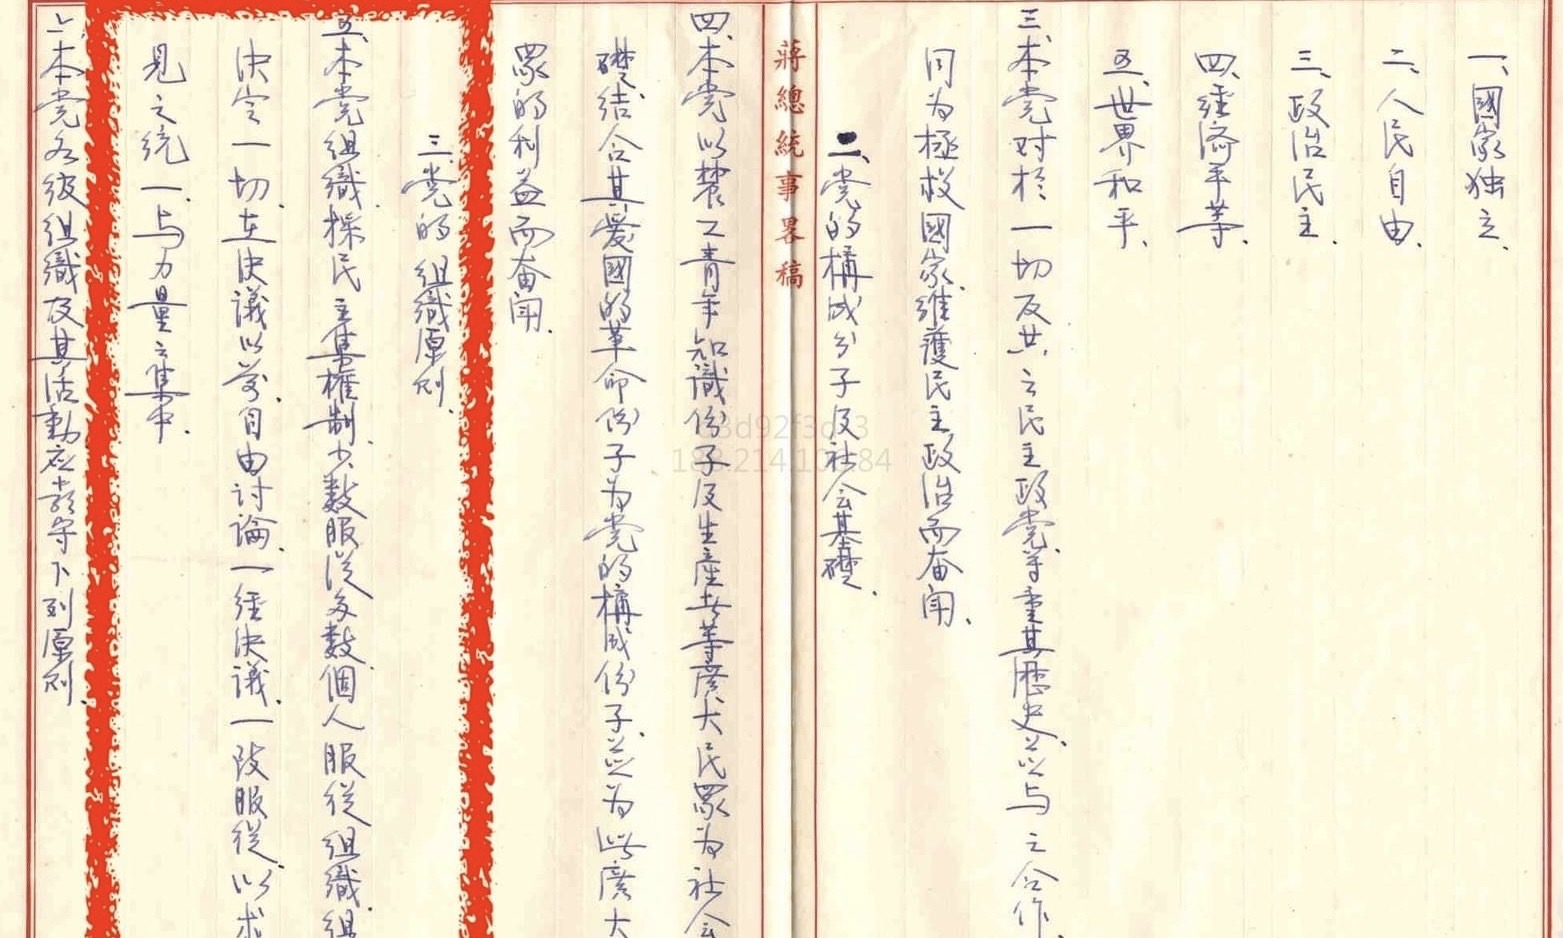 一、國家独立、
二、人民自由、
三、政治民主、
四、經济平等、
五、世界和平、
三、本党对於一切反共之民主政党尊重其歷史、並与之合作、
同为極救國家、維護民主政治而奋闻、
二、党的構成分子及社会基礎、
蔣總統事畧稿
四、本党以農工青年知識份子及生產者等廣大民眾为社会
礎、結合其愛國的革命份子为党的構成份子、並为此廣大
眾的利益而奋闻、
三、党的組織原则、
五、本党組織採民主集權制、少数服従多数、個人服従組織、組
決定一切、在決議以前自由討論、一經決議、一致服従、以求
見之統一、与力量之集中、
本党各级組織及其活動应遵守下列原则、